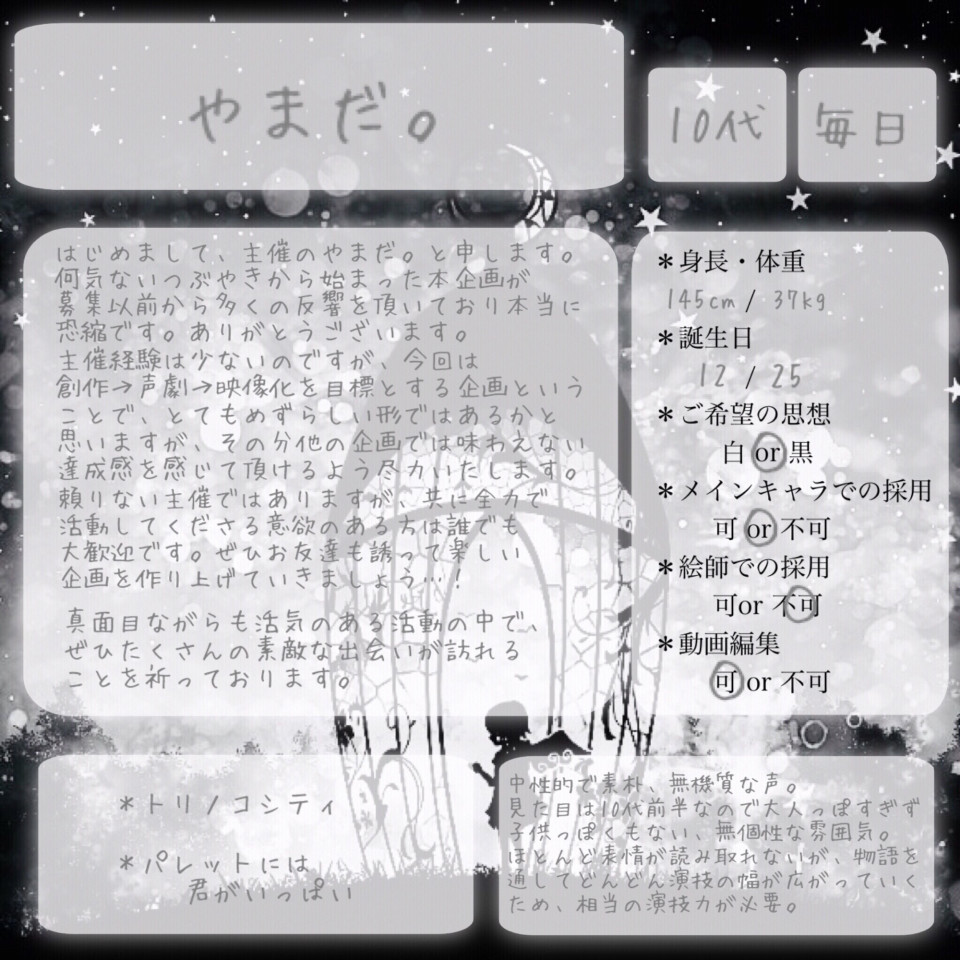 やまだ。
10代
毎日
はじめまして、主催のやまだ。と申します。
何気ないつぶやきから始まった本企画が
募集以前から多くの反響を頂いており本当に
恐縮です。ありがとうございます。
主催経験は少ないのですが、今回は
創作→声劇→映像化を目標とする企画という
ことで、とてもめずらしい形ではあるかと
思いますが、その分他の企画では味わえない
達成感を感じて頂けるよう尽力いたします。
頼りない主催ではありますが、共に全力で
活動してくださる意欲のある方は誰でも
大歓迎です。ぜひお友達も誘って楽しい
企画を作り上げていきましょう…!
真面目ながらも活気のある活動の中で、
ぜひたくさんの素敵な出会いが訪れる
ことを祈っております。
*身長・体重
145cm / 37kg
*誕生日
12 / 25
*ご希望の思想
白 or 黒
*メインキャラでの採用
可 or 不可
*絵師での採用
可or 不可
*動画編集
可 or 不可
*トリノコシティ
*パレットには
君がいっぱい
中性的で素朴、無機質な声。
見た目は10代前半なので大人っぽすぎず
子供っぽくもない、無個性な雰囲気。
ほとんど表情が読み取れないが、物語を
通してどんどん演技の幅が広がっていく
ため、相当の演技力が必要。